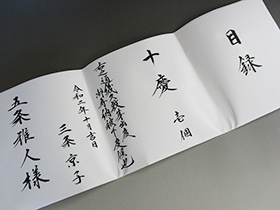 目録
十慶
壱個
令和二年十月吉日
三条 京子
五条雅人様